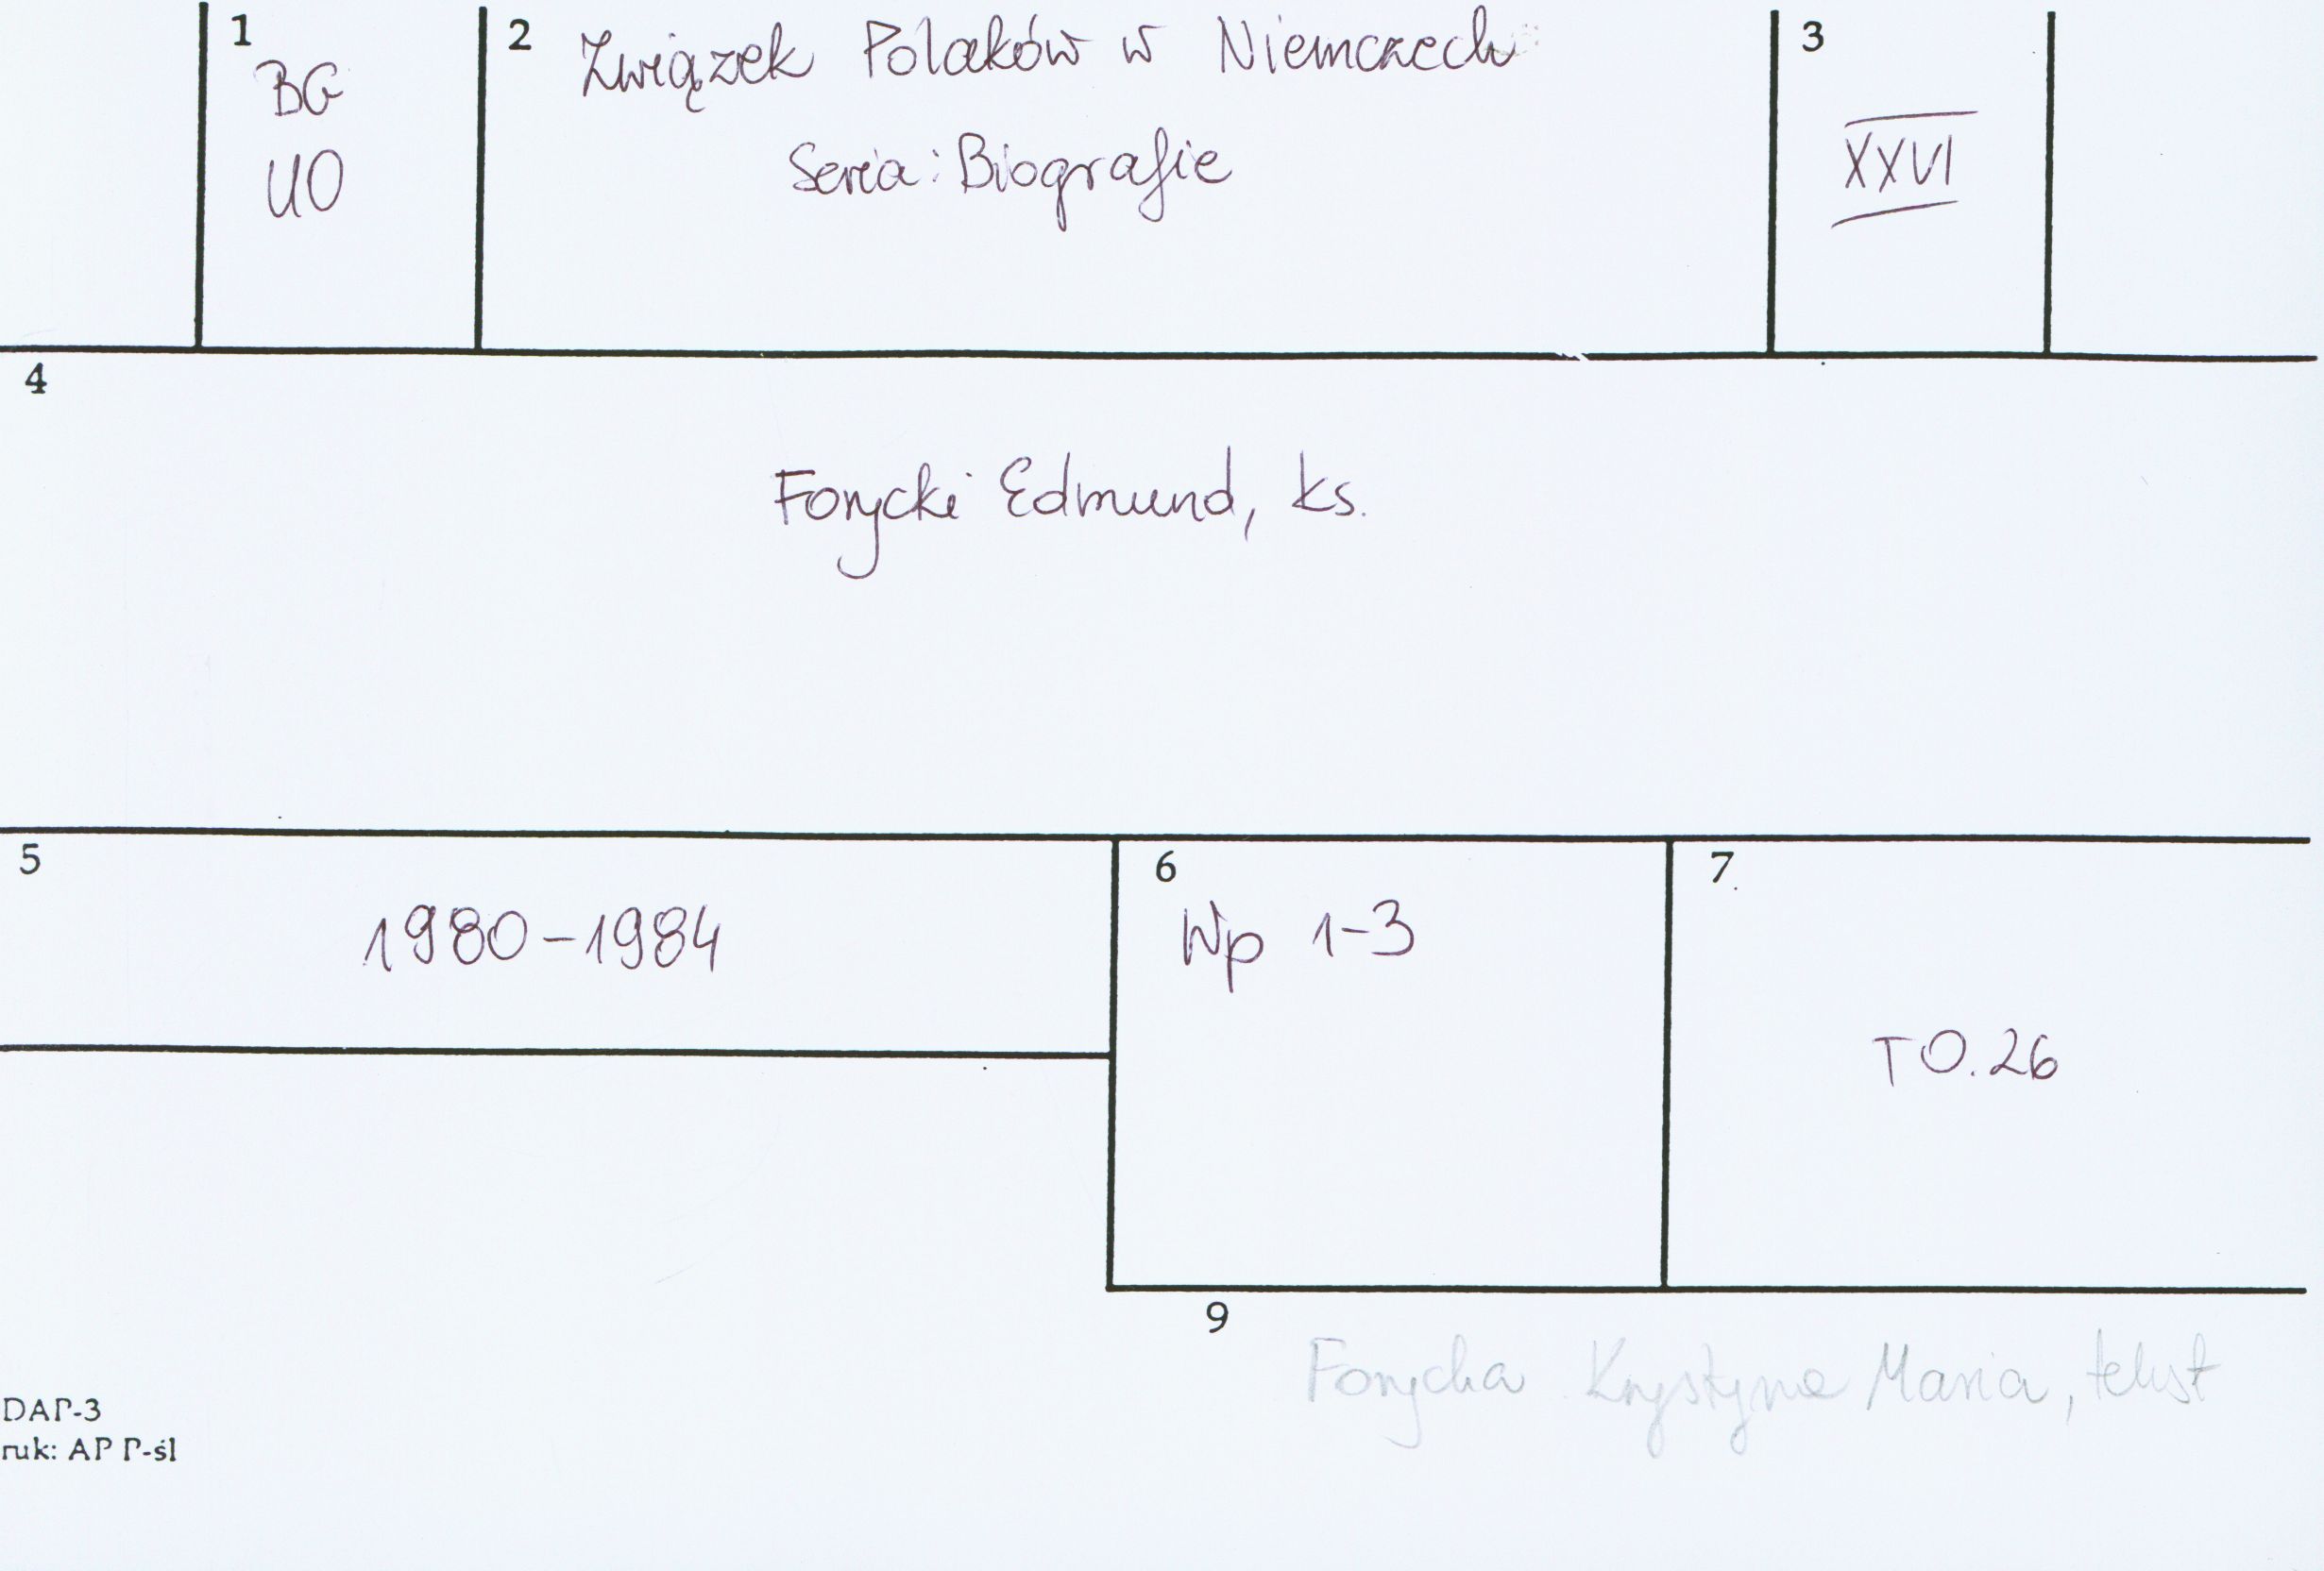 1
BG
UO
2
Związek Polaków w Niemczech
Seria: Biografie
3
XXVI
4
Forycki Edmund, ks.
5
1980-1984
6
Wp 1-3
7
TO.26
9
Forycka Krystyna Maria, tekst
DAP-3
ruk: AP P-śl